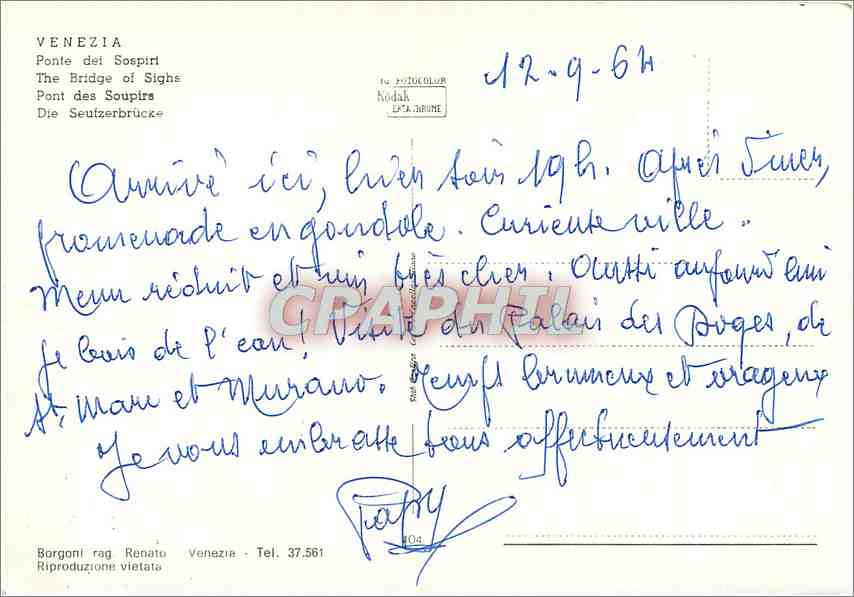 VENEZIA
Ponte dei Sospiri
The Bridge of Sighs
Pont des Soupirs
Die Seufzerbrücke
FOTOCOLOR
Kodak
EKTACHROME
12-9-64
Arrivé ici, hier soir 19h. Après diner,
promenade en gondole. Curieuse ville.
Menu réduit et vin très cher. Aussi aujourd'hui
je bois de l'eau! Visite du Palais des Doges, de
St. Marc et Murano. Temps brumeux et orageux
Je vous embrasse tous affectueusement
Papy
CPAPHIL
104
Borgoni rag. Renato Venezia - Tel. 37.561
Riproduzione vietata